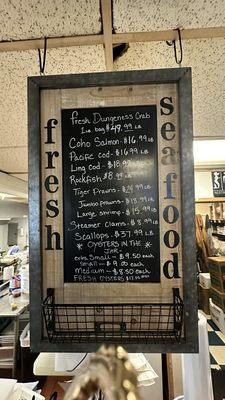 fresh
seafood
Fresh Dungeness Crab
1LB bag $49.99 LB
Coho Salmon - $16.99 LB
Pacific Cod - $16.99 LB
Ling Cod - $18.99 LB
Rockfish $8.99 LB
Tiger Prawns - $24.99 LB
Jumbo Prawns - $18.99 LB
Large Shrimp - $15.99 LB
Steamer Clams - $8.99 LB
Scallops - $37.99 LB
* OYSTERS IN THE JAR *
extra small - $ each
small - $9.00 each
Medium - $8.50 each
FRESH OYSTERS